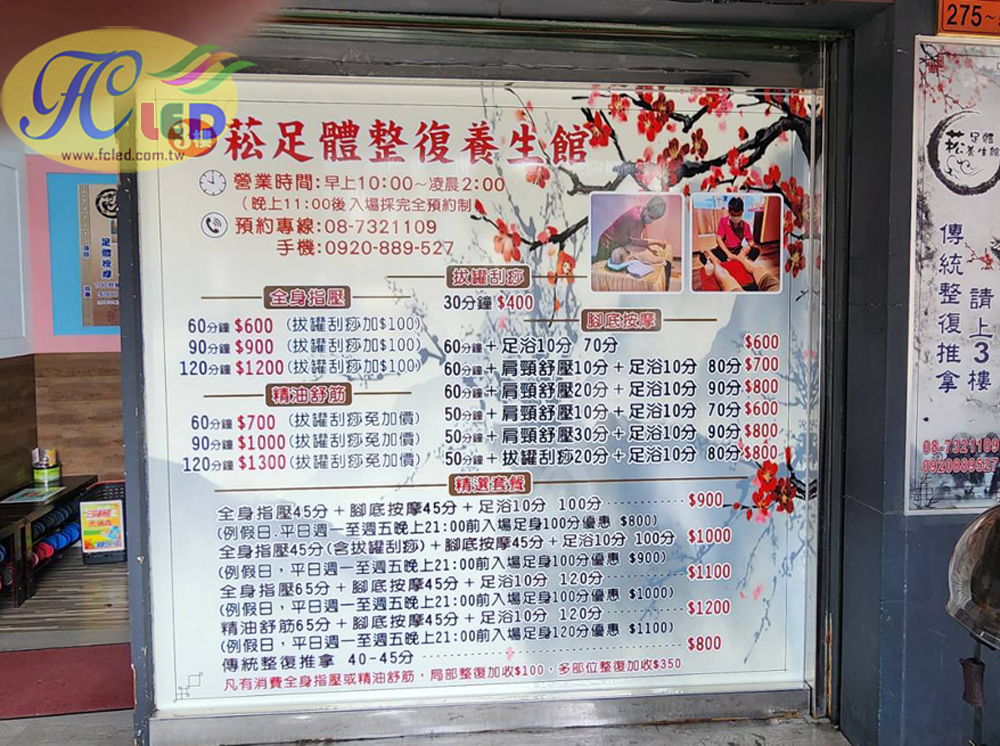 FC LED
www.fcled.com.tw
3樓 菘足體整復養生館
營業時間:早上10:00～凌晨2:00
(晚上11:00後入場採完全預約制
預約專線:08-7321109
手機:0920-889-527
拔罐刮痧
30分鐘 $400
全身指壓
60分鐘 $600 (拔罐刮痧加$100)
90分鐘 $900 (拔罐刮痧加$100)
120分鐘 $1200 (拔罐刮痧加$100)
精油舒筋
60分鐘 $700 (拔罐刮痧免加價)
90分鐘 $1000 (拔罐刮痧免加價)
120分鐘 $1300 (拔罐刮痧免加價)
腳底按摩
60分鐘＋足浴10分 70分 $600
60分鐘＋肩頸舒壓10分＋足浴10分 80分 $700
60分鐘＋肩頸舒壓20分＋足浴10分 90分 $800
50分鐘＋肩頸舒壓10分＋足浴10分 70分 $600
50分鐘＋肩頸舒壓30分＋足浴10分 90分 $800
50分鐘＋拔罐刮痧20分＋足浴10分 80分 $800
精選套餐
全身指壓45分＋腳底按摩45分＋足浴10分 100分 $900
(例假日.平日週一至週五晚上21:00前入場足身100分優惠 $800)
全身指壓45分(含拔罐刮痧)＋腳底按摩45分＋足浴10分 100分 $1000
(例假日，平日週一至週五晚上21:00前入場足身100分優惠 $900)
全身指壓65分＋腳底按摩45分＋足浴10分 120分 $1100
(例假日，平日週一至週五晚上21:00前入場足身100分優惠 $1000)
精油舒筋65分＋腳底按摩45分＋足浴10分 120分 $1200
(例假日，平日週一至週五晚上21:00前入場足身120分優惠 $1100)
傳統整復推拿 40-45分 $800
凡有消費全身指壓或精油舒筋，局部整復加收$100，多部位整復加收$350
275~
菘足體養生館
傳統整復推拿
請上3樓
08-7321109
0920889527
足體按摩